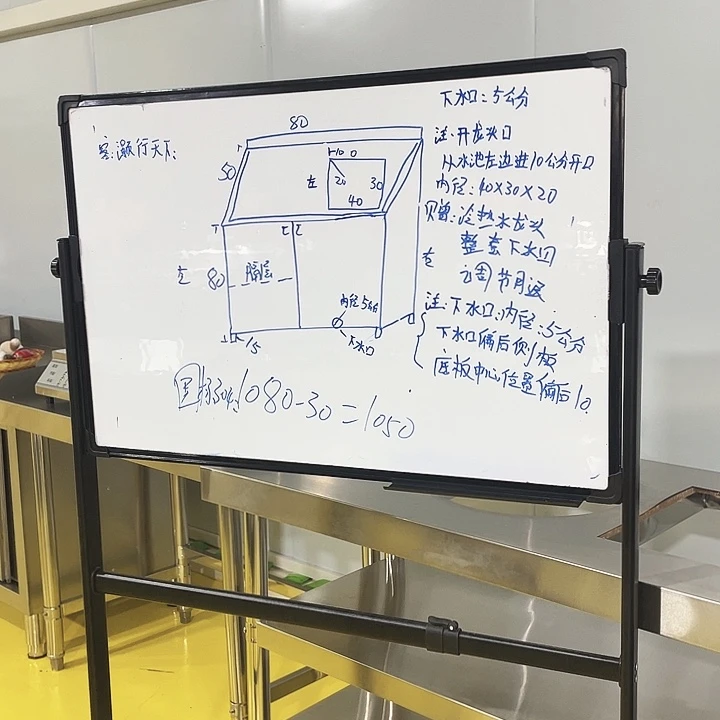 下水口:5公分
80
客:灏行天下:
注:开龙头口
50
10
从水池左边进10公分开口
左
20
30
内径:40×30×20
40
冷热水龙头
整套下水口
左
80
隔层
可调节
内径5公分
注:下水口:内径:5公分
下水口
下水口偏后侧板
15
底板中心位置偏后10.
1080-30=1050